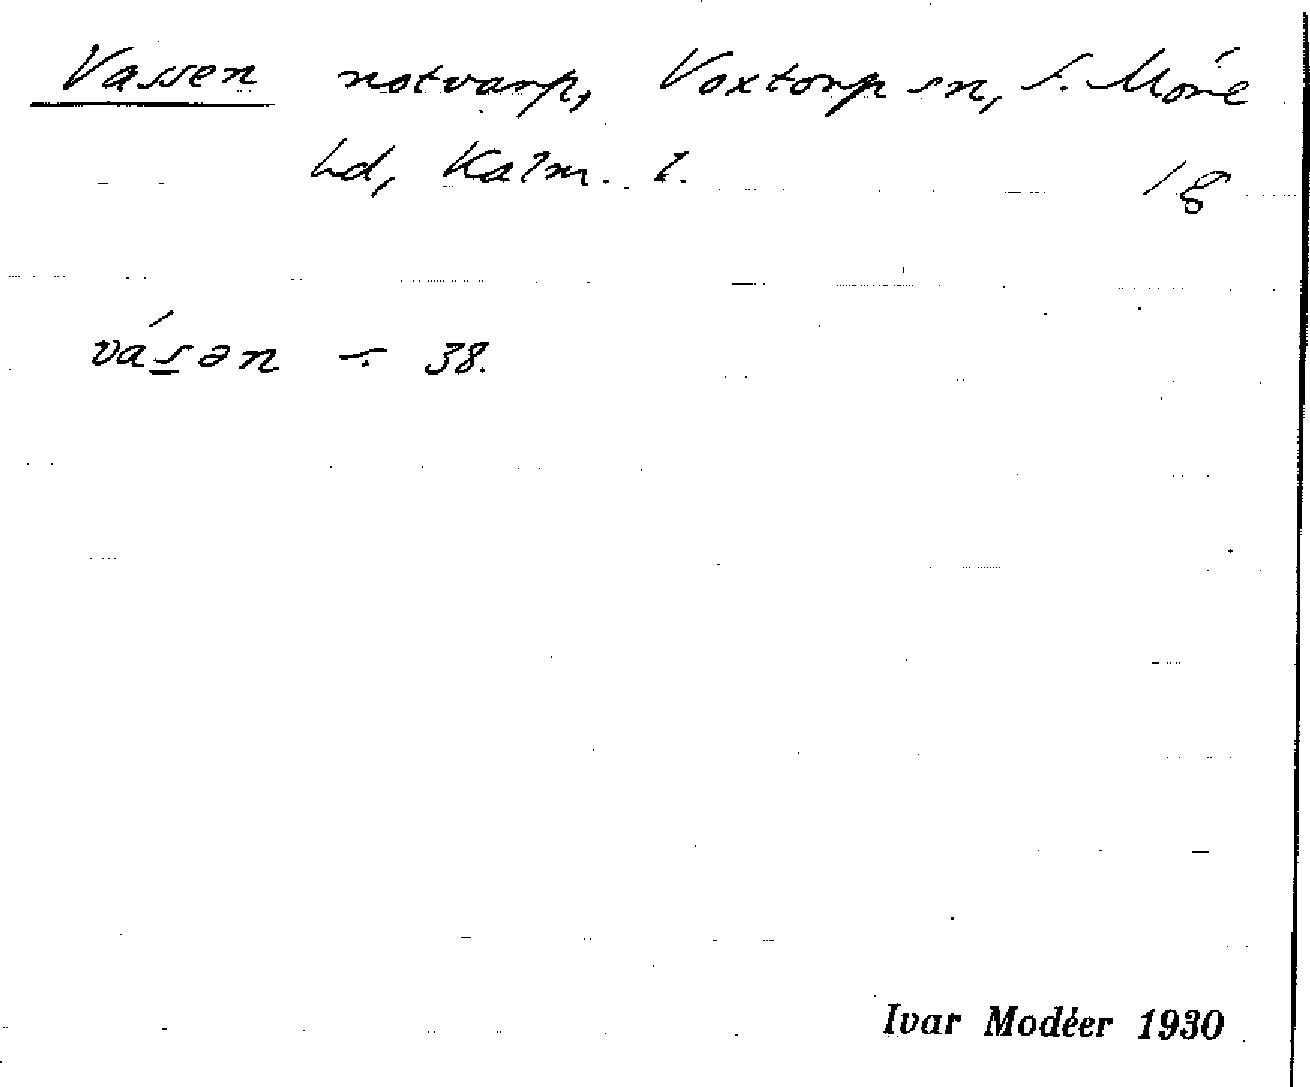 Vassen notvarp, Voxtorp sn, S. Möre
hd, Kalm. l. 18
vás̲ən ÷ 38.
Ivar Modéer 1930